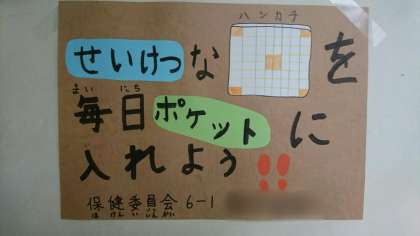 ハンカチ
せいけつな を
まい にち
毎日ポケットに
入れよう!!
保健委員会 6-1
ほ けん い いん かい